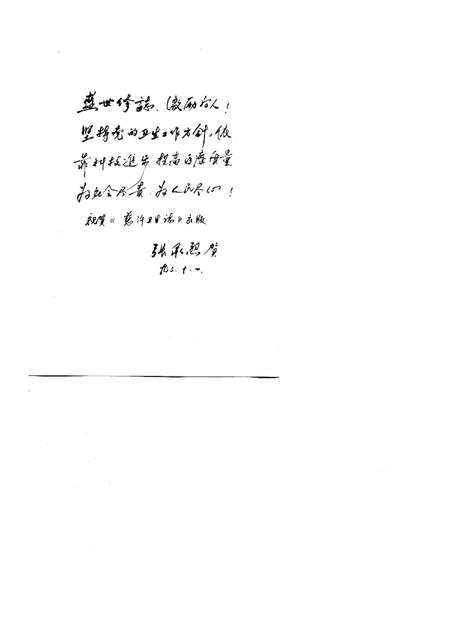 盛世修誌,激励后人!
坚持党的卫生工作方针,依
靠科技进步提高医疗质量
为社会尽责,为人民尽心!
祝贺《 卫生志》出版
张 贺
九二.十.一.